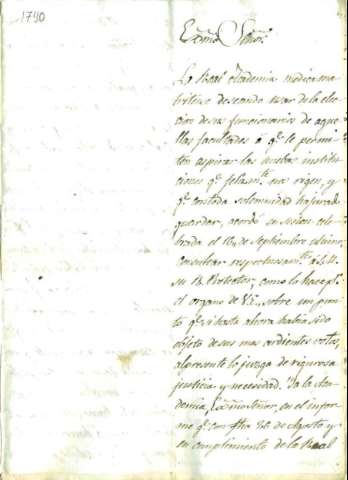 1790
Exmo Señor.
La Real Academia medica ma
tritense deseando usar de la elec
cion de sus funcionarios de aque
llas facultades á qe. le permi
ten aspirar las nuebas institu
ciones qe. felizmte. nos rigen, y
qe. con toda solemnidad ha jurado
guardar, acordó en sesion cele
brada el 14 de Septiembre ultimo,
consultar respetuosamte. á S.M.
su R. Protector, como lo hace pr.
el organo de V.E., sobre un pun
to qe. si hasta ahora habia sido
objeto de sus mas ardientes votos,
al presente lo juzga de rigurosa
justicia y necesidad. Ya la Aca
demia, Exmo Señor, en el infor
me qe. con fha 30 de Agosto y
en cumplimiento de la Real